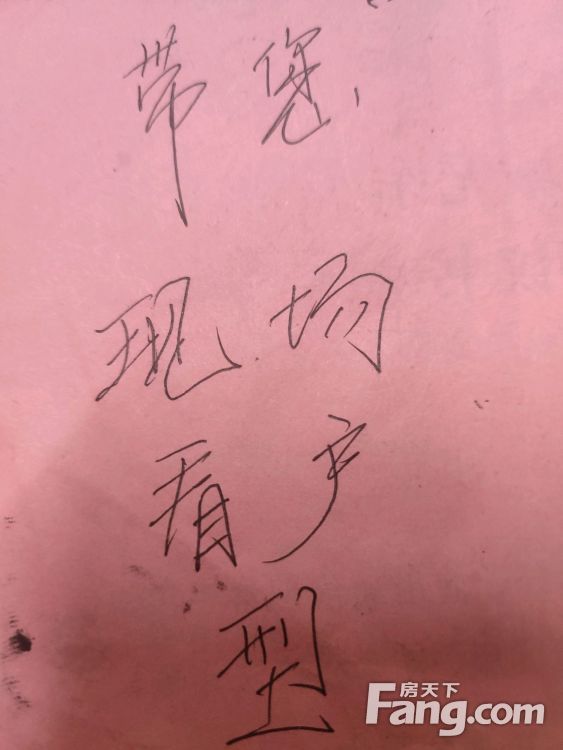 带您
现场
看户
型
房天下
Fang.com